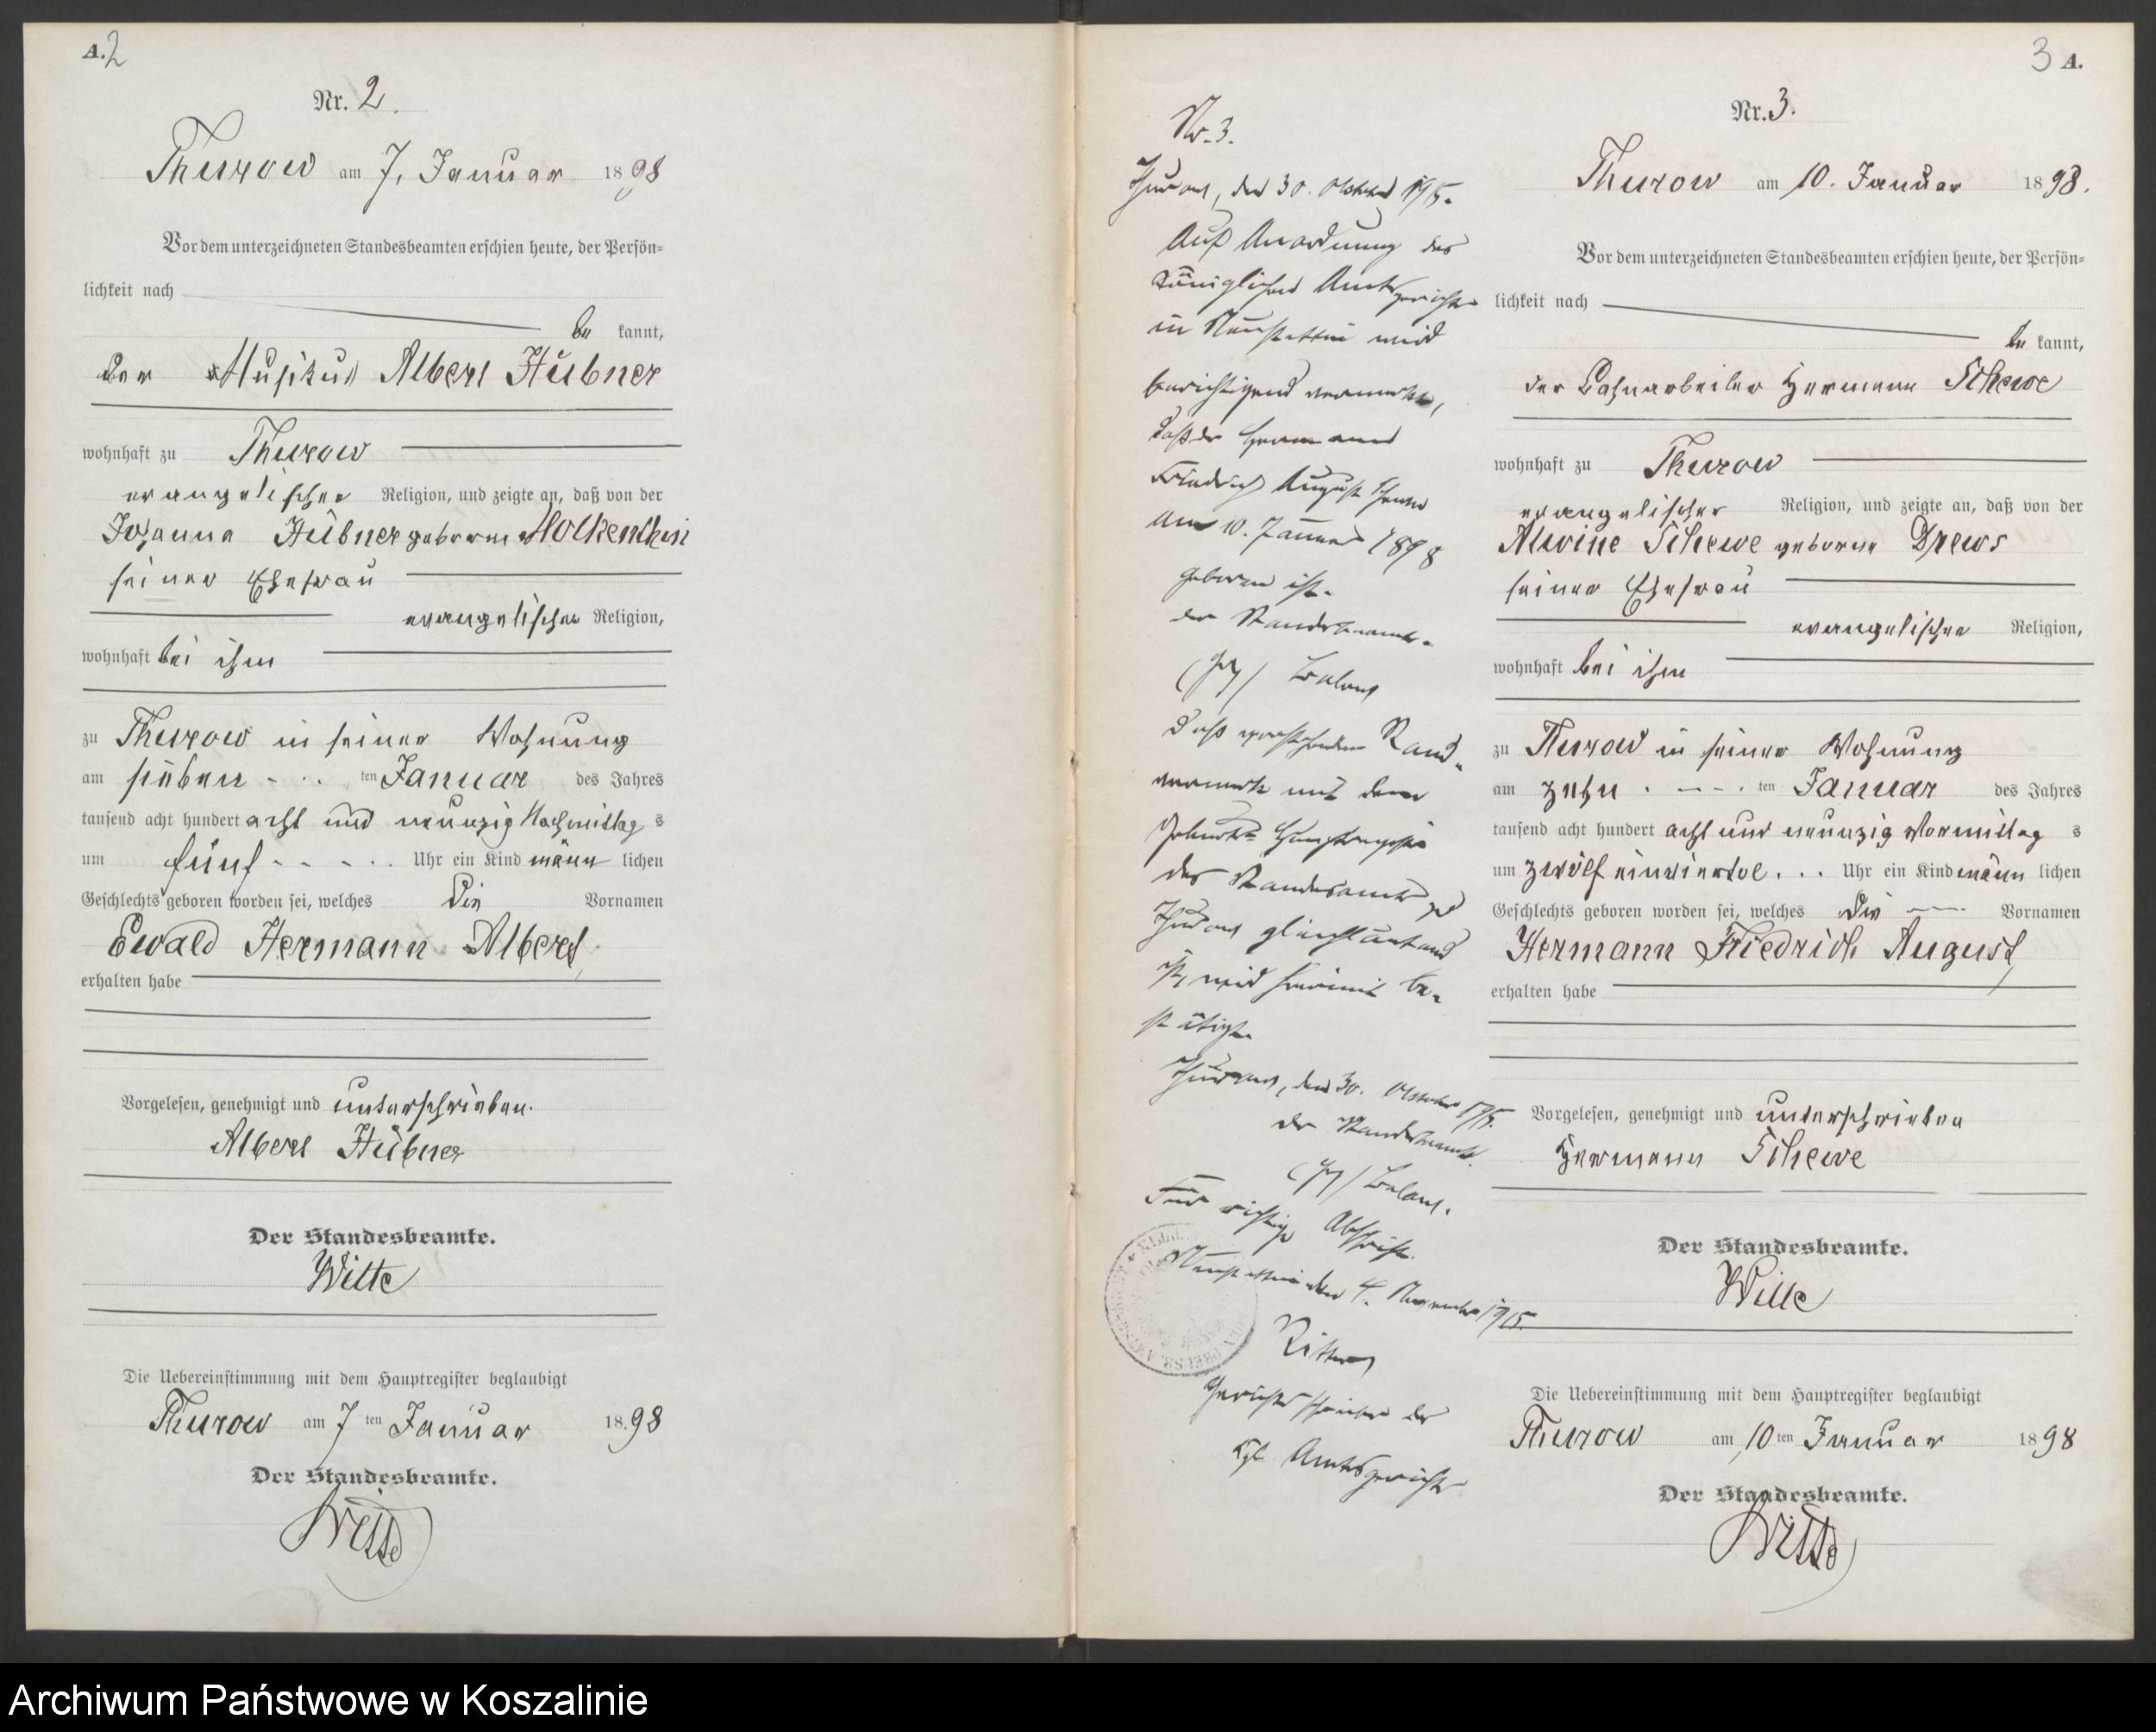 A. 2
Nr. 2.
Thurow am 7. Januar 1898
Vor dem unterzeichneten Standesbeamten erschien heute, der Persön-
lichkeit nach
be kannt,
der Musikus Albert Hübner
wohnhaft zu Thurow
evangelischer Religion, und zeigte an, daß von der
Johanna Hübner geborne Molkenthin
seiner Ehefrau
evangelischer Religion,
wohnhaft bei ihm
zu Thurow in seiner Wohnung
am sieben ten Januar des Jahres
tausend acht hundert acht und neunzig Nachmittag s
um fünf Uhr ein Kind männ lichen
Geschlechts geboren worden sei, welches die Vornamen
Ewald Hermann Albert
erhalten habe
Vorgelesen, genehmigt und unterschrieben.
Albert Hübner
Der Standesbeamte.
Witte
Die Uebereinstimmung mit dem Hauptregister beglaubigt
Thurow am 7 ten Januar 1898
Der Standesbeamte.
Witte
Nr. 3.
Thurow, den 30. Oktober 1915.
Auf Anordnung des
Königlichen Amtsgerichts
in Neustettin wird
berichtigend vermerkt,
daß der Hermann
Friedrich August Schewe
am 10. Januar 1898
geboren ist.
Der Standesbeamte.
(gez)
Daß vorstehender Rand-
vermerk mit dem
Geburts-Hauptregister
des Standesamts zu
Thurow gleichlautend
ist, wird hiermit be-
stätigt.
Thurow, den 30. Oktober 1915.
Der Standesbeamte.
(gez)
Für richtige Abschrift.
Neustettin den 4. November 1915.
Gerichtsschreiber des
Kgl. Amtsgerichts
3 A.
Nr. 3.
Thurow am 10. Januar 1898.
Vor dem unterzeichneten Standesbeamten erschien heute, der Persön-
lichkeit nach
be kannt,
der Bahnarbeiter Hermann Schewe
wohnhaft zu Thurow
evangelischer Religion, und zeigte an, daß von der
Alwine Schewe geborne Drews
seiner Ehefrau
evangelischer Religion,
wohnhaft bei ihm
zu Thurow in seiner Wohnung
am zehn ten Januar des Jahres
tausend acht hundert acht und neunzig Vormittag s
um zwölf einviertel Uhr ein Kind männ lichen
Geschlechts geboren worden sei, welches die Vornamen
Hermann Friedrich August
erhalten habe
Vorgelesen, genehmigt und unterschrieben
Hermann Schewe
Der Standesbeamte.
Witte
Die Uebereinstimmung mit dem Hauptregister beglaubigt
Thurow am 10 ten Januar 1898
Der Standesbeamte.
Witte
Archiwum Państwowe w Koszalinie